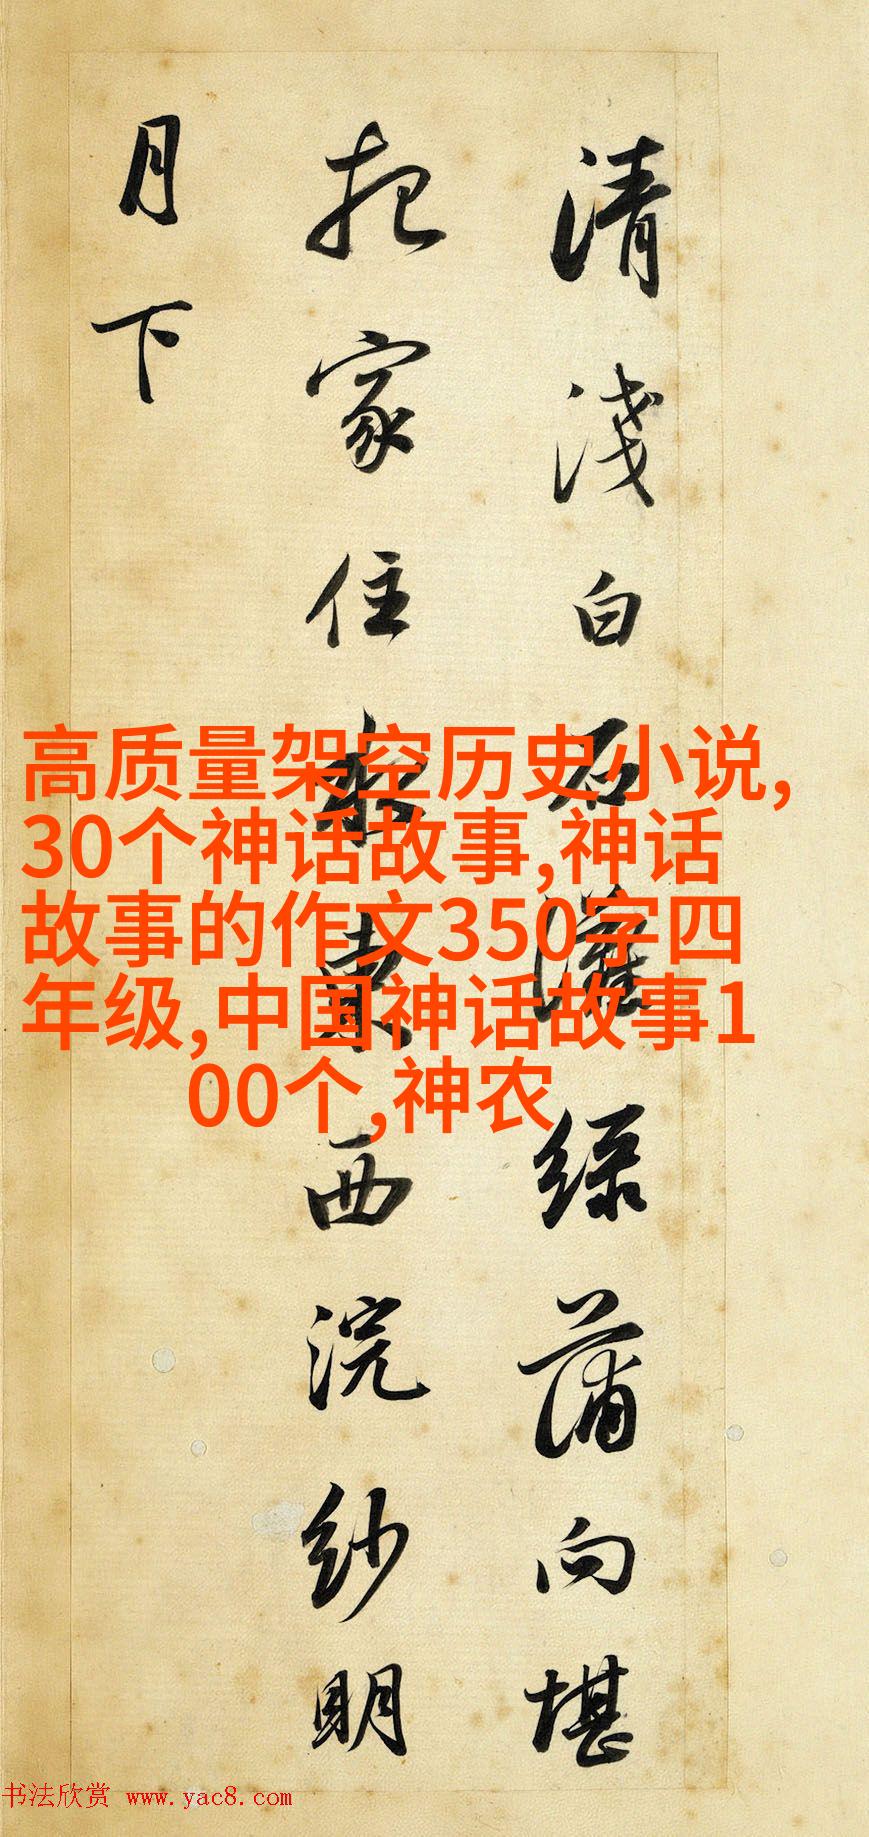 清淺白石灘綠蒲向堪
把家住水東西浣紗明
月下
高质量架空历史小说,
30个神话故事,神话
故事的作文350字四
年级,中国神话故事1
00个,神农
书法欣赏 www.yac8.com